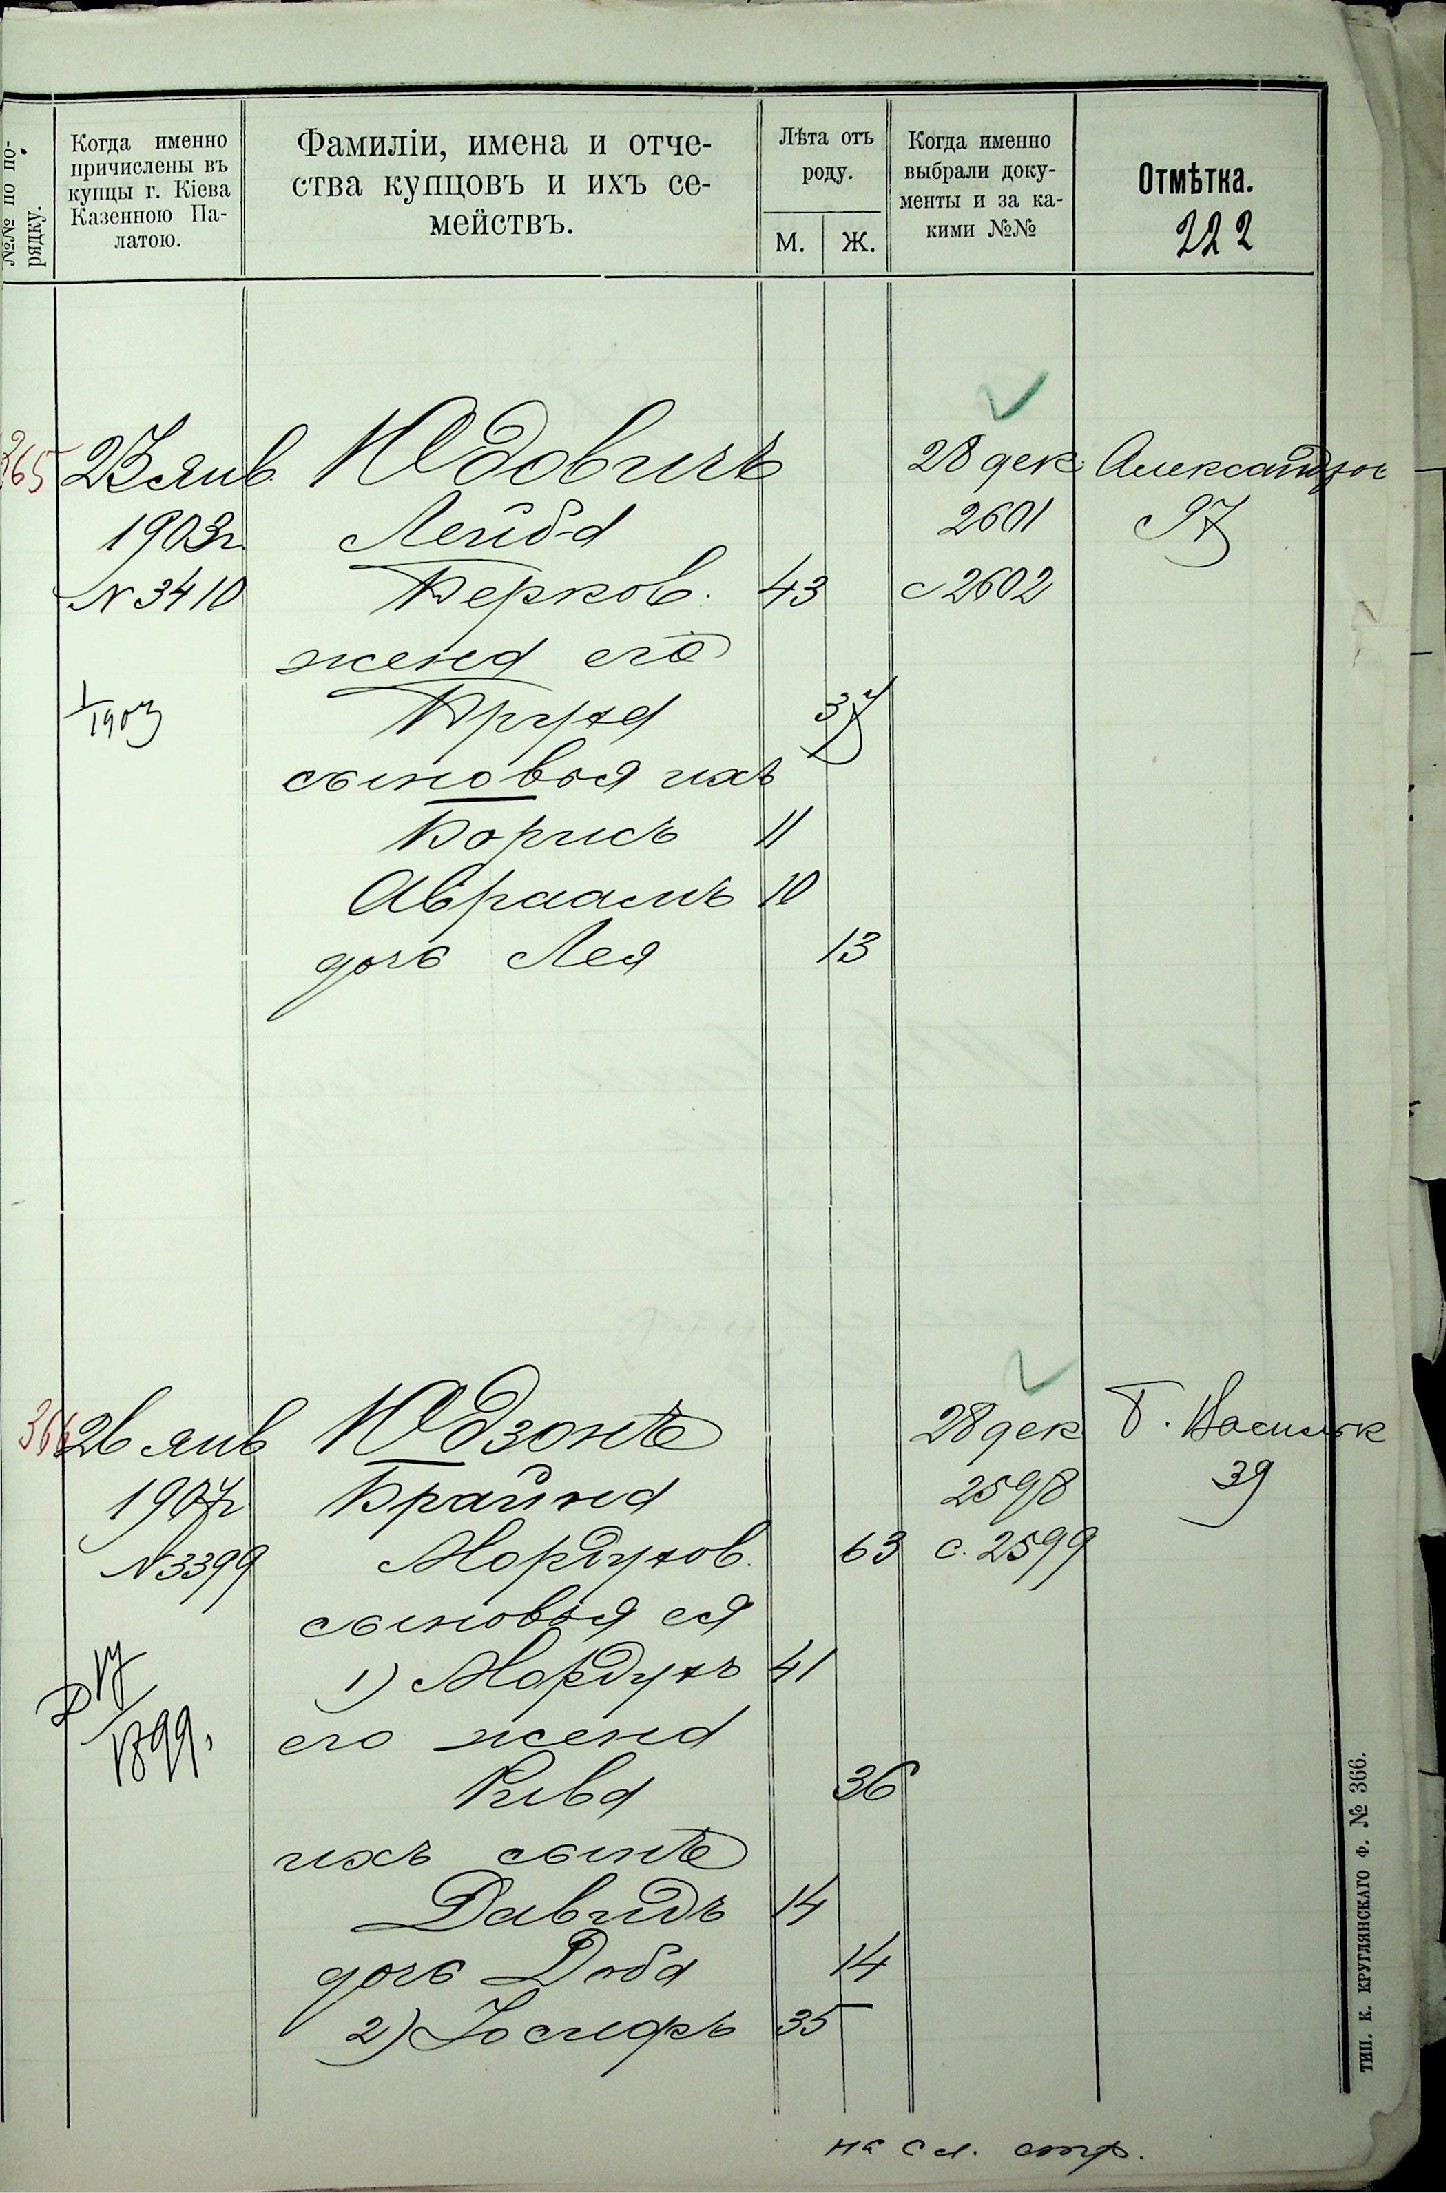 №№ по по-
рядку.
Когда именно
причислены въ
купцы г. Кіева
Казенною Па-
латою.
Фамиліи, имена и отче-
ства купцовъ и ихъ се-
мействъ.
Лѣта отъ
роду.
М. Ж.
Когда именно
выбрали доку-
менты и за ка-
кими №№
Отмѣтка.
222
365 23 янв Юдовичъ 28 дек Александров
1903г. Лейба 2601 97
N 3410 Берков. 43 с 2602
жена его
1/1903 Бруха 37
сыновья ихъ
Борисъ 11
Авраамъ 10
дочь Лея 13
366 26 янв Юдзонъ 28 дек Б. Васильк
1907г Брайна 2598 39
N 3399 Мордухов. 63 с. 2599
сыновья ея
1) Мордухъ 41
1899.
его жена
Рива 36
ихъ сынъ
Давидъ 14
дочь Доба 14
2) Іосифъ 35
на сл. стр.
ТИП. К. КРУГЛЯНСКАГО Ф. № 366.